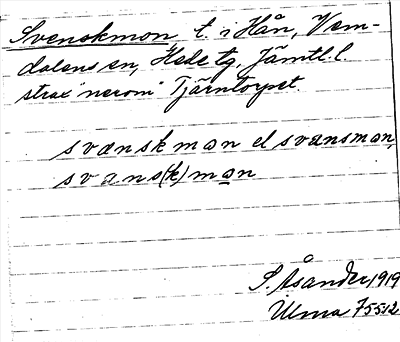 Svenskmon t. i Hån, Vem-
dalens sn, Hede tg, Jämtl. l.
strax "nerom" Tjärntorpet.
svænskmon el svænsmon,
svæns(k)mon
S. Åsander 1919
Ulma 75512